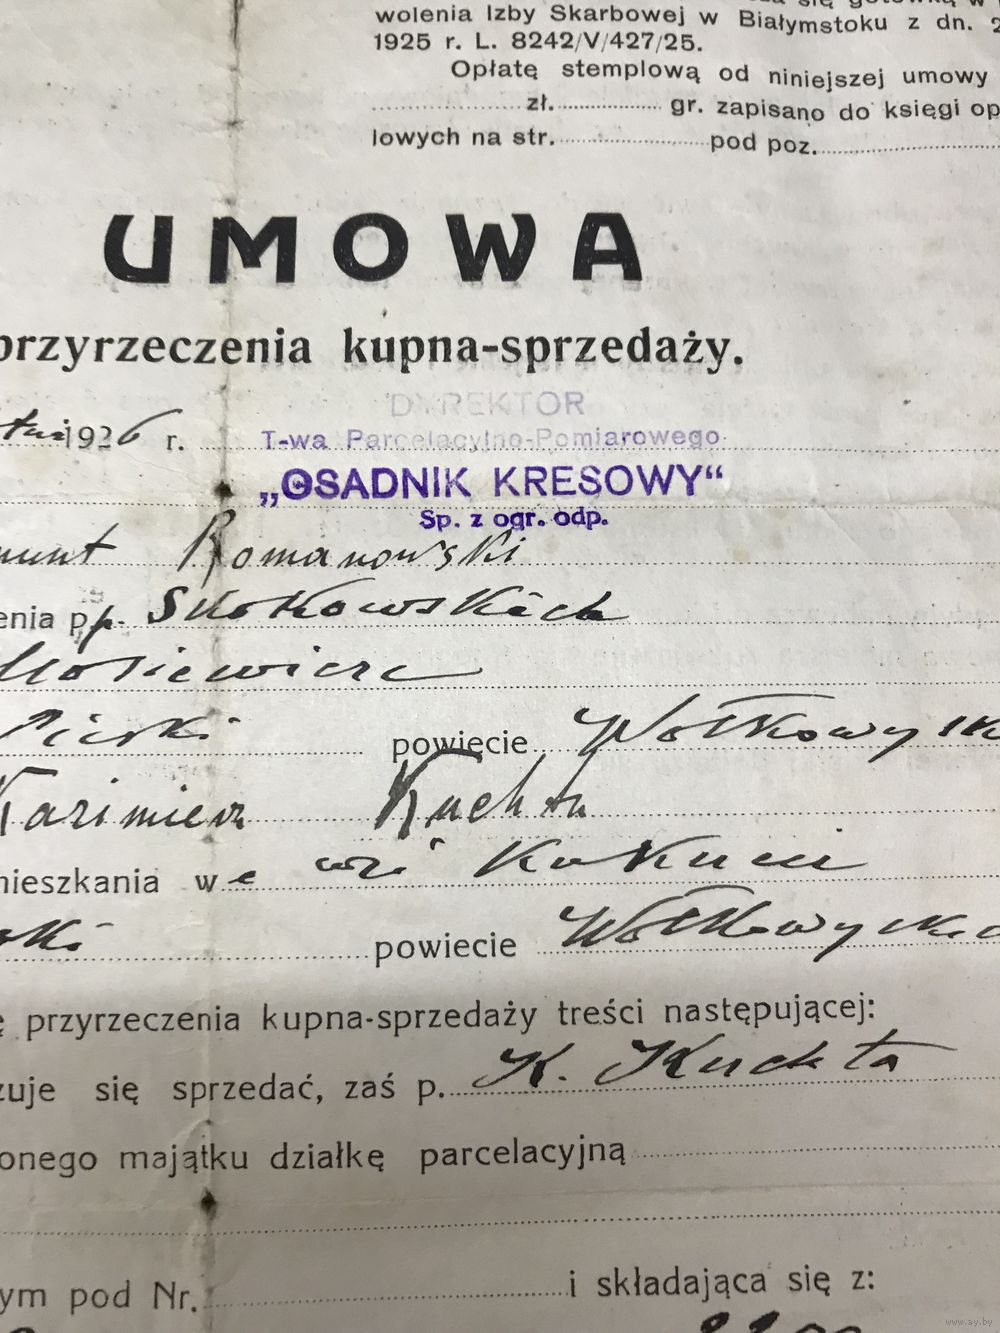 wolenia Izby Skarbowej w Białymstoku z dn. 2
1925 r. L. 8242/V/427/25.
Opłatę stemplową od niniejszej umowy
zł. gr. zapisano do księgi op
lowych na str. pod poz.
UMOWA
przyrzeczenia kupna-sprzedaży.
1926 r.
DYREKTOR
T-wa Parcelacyjno-Pomiarowego
„OSADNIK KRESOWY“
Sp. z ogr. odp.
munt Romanowski
enia pp. 
powięcie Wołkowysk
Kazimierz Kuchta
mieszkania we wsi
powiecie Wołkowysk
ę przyrzeczenia kupna-sprzedaży treści następującej:
zuje się sprzedać, zaś p. K. Kuchta
onego majątku działkę parcelacyjną
ym pod Nr. i składająca się z:
www.ay.by